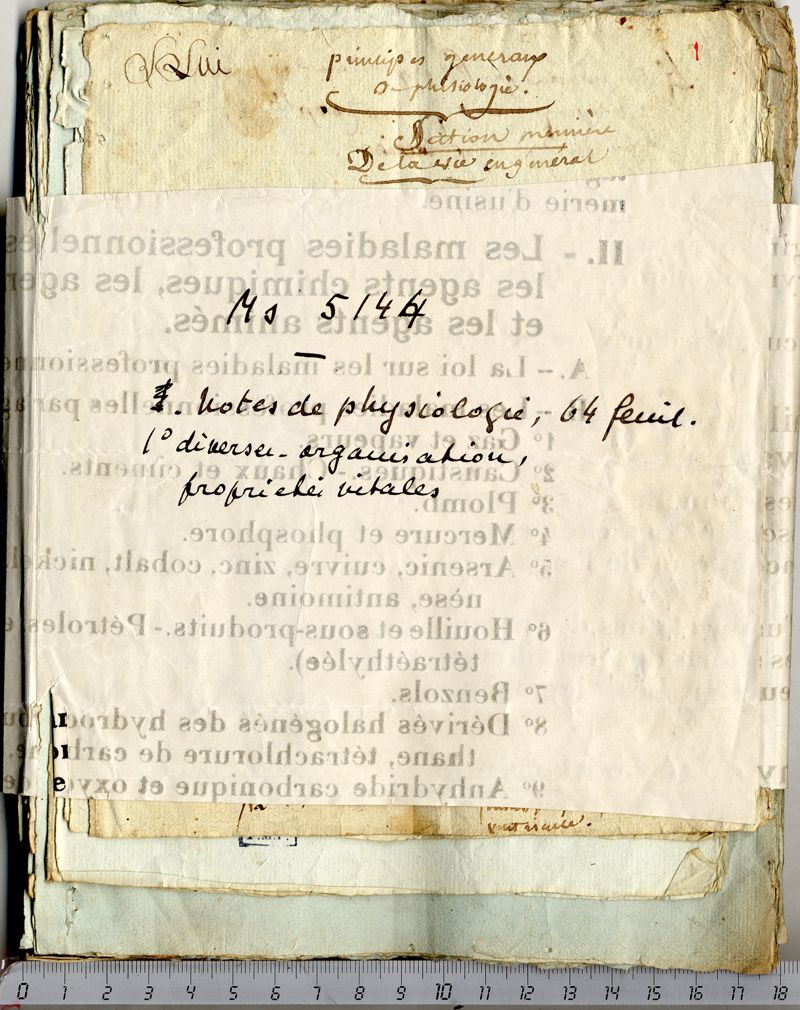 1
principes generaux
De phisiologie.
Section premiere
De la vie en general
Ms 5144
. Notes de physiologie, 64 feuil.
1° diverses - organisation,
propriétés vitales
merie d'usine.
II. - Les maladies professionnelles
les agents chimiques, les agen
et les agents animés.
A. – La loi sur les maladies professionne
nelles par
1° Gaz et vapeurs.
2° Caustiques. - Chaux et ciments.
3° Plomb.
4° Mercure et phosphore.
5° Arsenic, cuivre, zinc, cobalt, nickel
nèse, antimoine.
6° Houille et sous-produits. - Pétroles, e
tétraéthylée).
7° Benzols.
8° Dérivés halogénés des hydroc
thane, tétrachlorure de carbone.
9° Anhydride carbonique et oxyde de
ventricule.
0 1 2 3 4 5 6 7 8 9 10 11 12 13 14 15 16 17 18